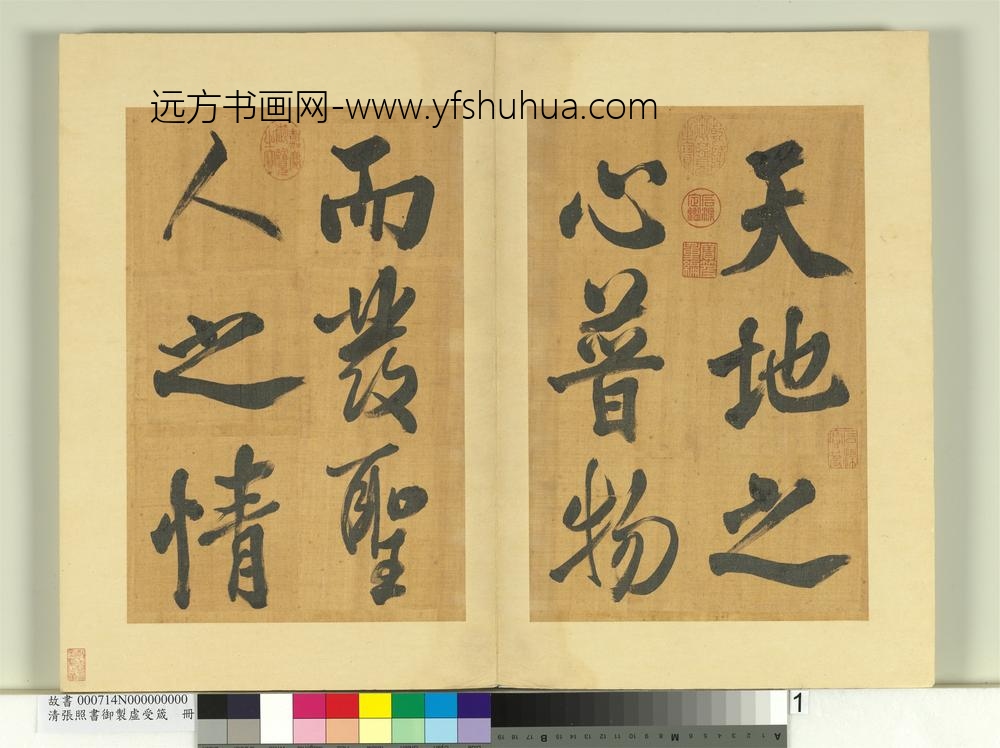 远方书画网-www.yfshuhua.com
天地之
心普物
而發聖
人之情
故書 000714N000000000
清張照書御製虛受箴 冊
1